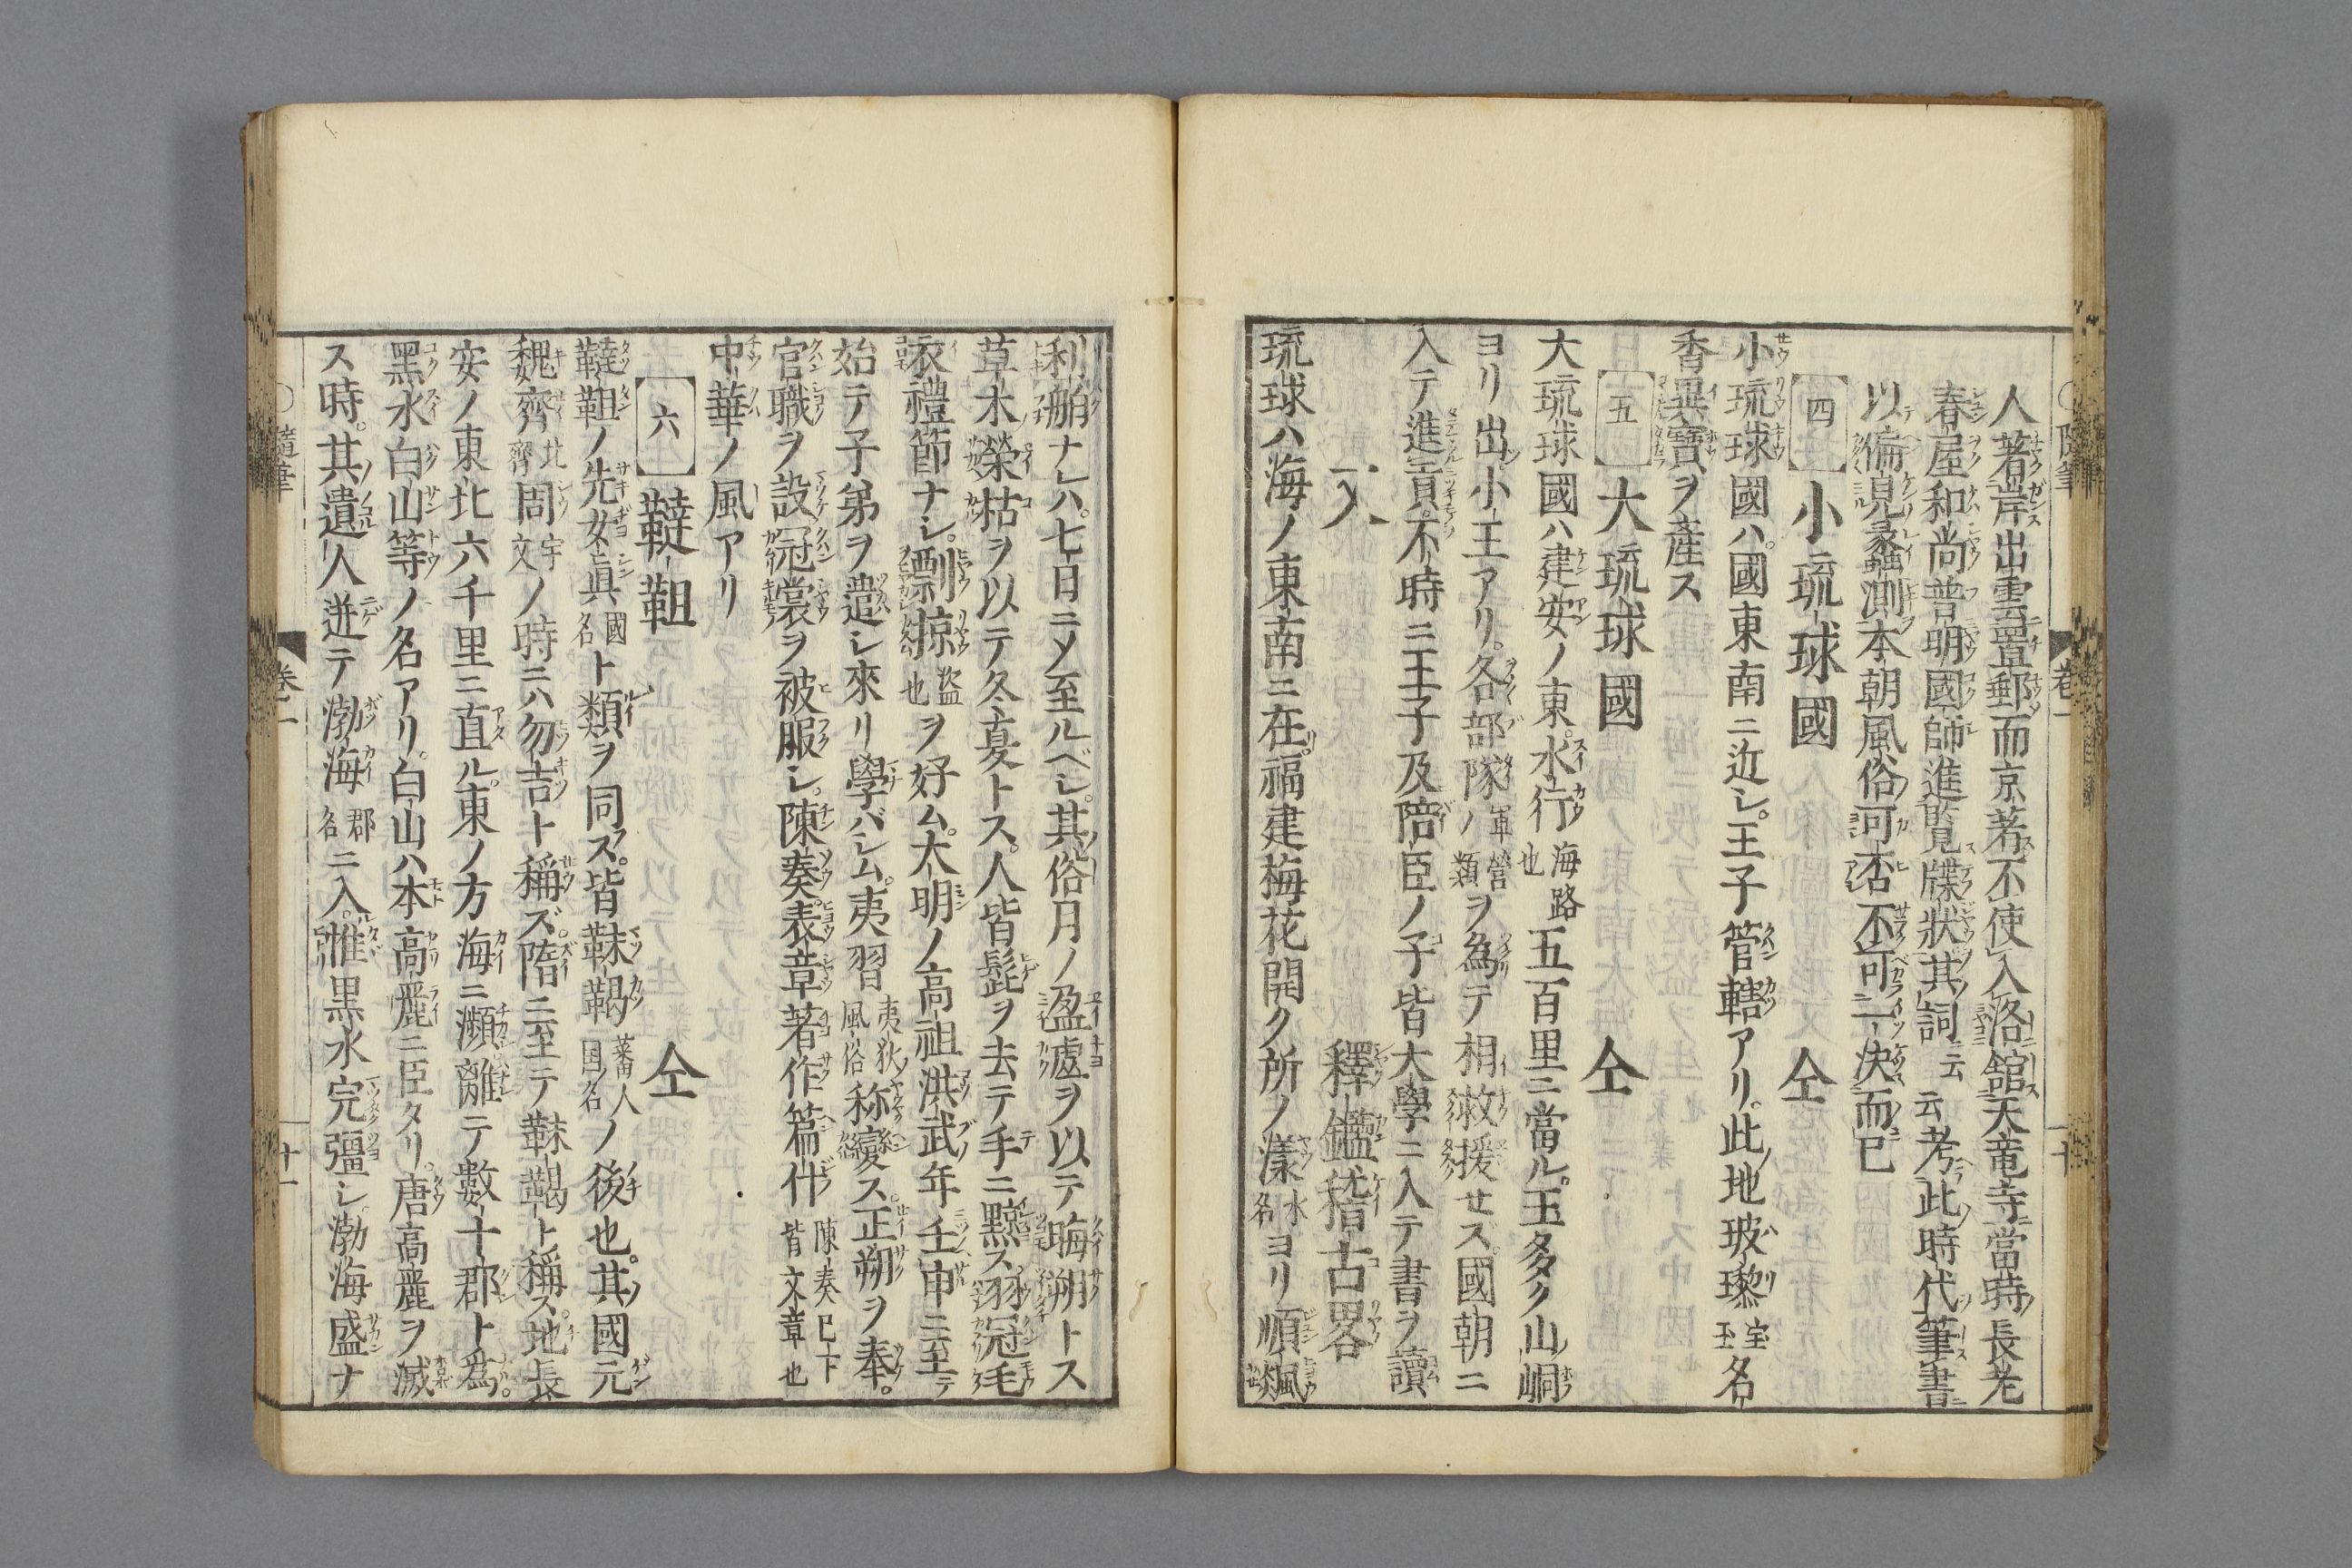 人著岸出雲置郵而京著不使入洛舘天竜寺當時長老
春屋和尚普明國師進覧牒状其詞云云考此時代筆書
以偏見蠡測本朝風俗可否不可一決而已
四 小琉球國 仝
小琉球國ハ國東南ニ近シ王子管轄アリ此地玻瓈宝玉名
香異寶ヲ産ス
五 大琉球國 仝
大琉球國ハ建安ノ東水行海路也五百里ニ當ル玉多ク山峒
ヨリ出小王アリ各部隊ノ軍営類ヲ為テ相救援セズ國朝ニ
入テ進貢不時ニ王子及陪臣ノ子皆大學ニ入テ書ヲ讀
又 釋鑑稽古畧
琉球ハ海ノ東南ニ在福建梅花開ク所ノ漾水名ヨリ順颿
利舶ナレハ七日ニメ至ルベシ其俗月ノ盈虚ヲ以テ晦朔トス
草木榮枯ヲ以テ冬夏トス人皆髭ヲ去テ手ニ黥ス羽冠毛
衣禮節ナシ剽掠盗也ヲ好ム大明ノ高祖洪武年壬申ニ至テ
始テ子弟ヲ遣シ來リ學バシム夷習夷狄ノ風俗称變ス正朔ヲ奉
官職ヲ設冠裳ヲ被服シ陳奏表章著作篇什陳奏已下皆文章也
中華ノ風アリ
六 韃靼 仝
韃靼ノ先女眞國名ト類ヲ同ス皆靺鞨蕃人国名ノ後也其國元
魏齊北齊周宇文ノ時ニハ勿吉ト稱ズ隋ニ至テ靺鞨ト稱ス地長
安ノ東北六千里ニ直ル東ノ方海ニ瀕離テ數十郡ト爲
黒水白山等ノ名アリ白山ハ本高麗ニ臣タリ唐高麗ヲ滅
ス時其遺人迸テ渤海郡名ニ入惟黒水完彊シ渤海盛ナ
隨筆 卷一 十一